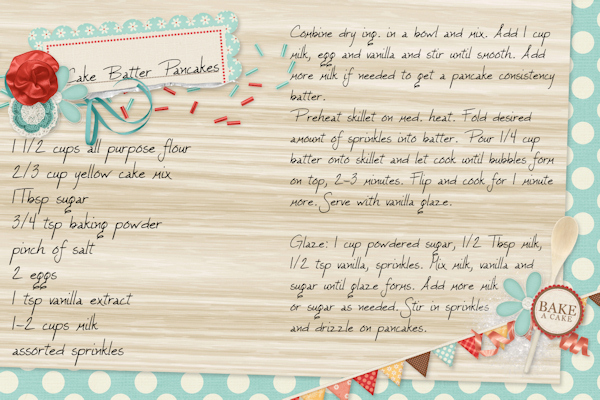 Cake Batter Pancakes
1 1/2 cups all purpose flour
2/3 cup yellow cake mix
1 Tbsp sugar
3/4 tsp baking powder
pinch of salt
2 eggs
1 tsp vanilla extract
1-2 cups milk
assorted sprinkles
Combine dry ing. in a bowl and mix. Add 1 cup
milk, egg and vanilla and stir until smooth. Add
more milk if needed to get a pancake consistency
batter.
Preheat skillet on med. heat. Fold desired
amount of sprinkles into batter. Pour 1/4 cup
batter onto skillet and let cook until bubbles form
on top, 2-3 minutes. Flip and cook for 1 minute
more. Serve with vanilla glaze.
Glaze: 1 cup powdered sugar, 1/2 Tbsp milk,
1/2 tsp vanilla, sprinkles. Mix milk, vanilla and
sugar until glaze forms. Add more milk
or sugar as needed. Stir in sprinkles
and drizzle on pancakes.
BAKE
A CAKE